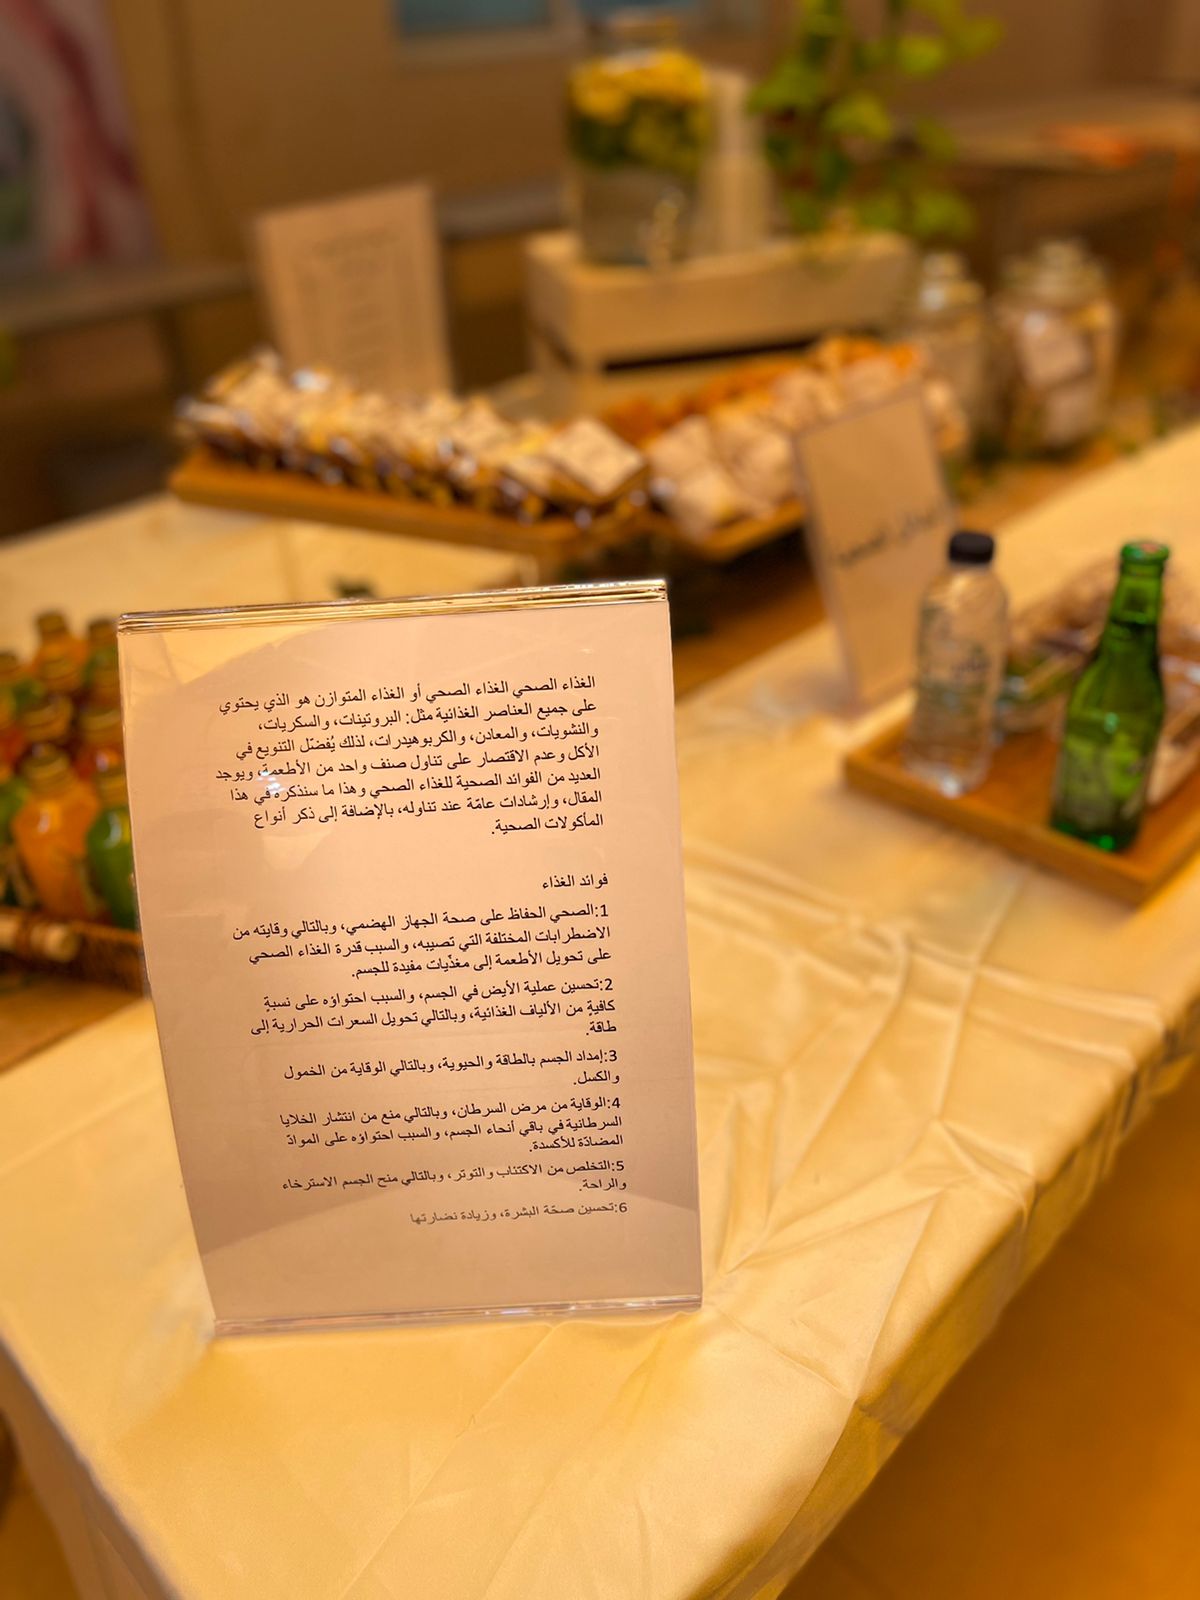 الغذاء الصحي الغذاء الصحي أو الغذاء المتوازن هو الذي يحتوي
على جميع العناصر الغذائية مثل: البروتينات، والسكريات،
والنشويات، والمعادن، والكربوهيدرات، لذلك يُفضّل التنويع في
الأكل وعدم الاقتصار على تناول صنف واحد من الأطعمة، ويوجد
العديد من الفوائد الصحية للغذاء الصحي وهذا ما سنذكره في هذا
المقال، وإرشادات عامّة عند تناوله، بالإضافة إلى ذكر أنواع
المأكولات الصحية.
فوائد الغذاء
1:الصحي الحفاظ على صحة الجهاز الهضمي، وبالتالي وقايته من
الاضطرابات المختلفة التي تصيبه، والسبب قدرة الغذاء الصحي
على تحويل الأطعمة إلى مغذّيات مفيدة للجسم.
2:تحسين عملية الأيض في الجسم، والسبب احتواؤه على نسبةٍ
كافيةٍ من الألياف الغذائية، وبالتالي تحويل السعرات الحرارية إلى
طاقة.
3:إمداد الجسم بالطاقة والحيوية، وبالتالي الوقاية من الخمول
والكسل.
4:الوقاية من مرض السرطان، وبالتالي منع من انتشار الخلايا
السرطانية في باقي أنحاء الجسم، والسبب احتواؤه على الموادّ
المضادّة للأكسدة.
5:التخلص من الاكتئاب والتوتر، وبالتالي منح الجسم الاسترخاء
والراحة.
6:تحسين صحّة البشرة، وزيادة نضارتها